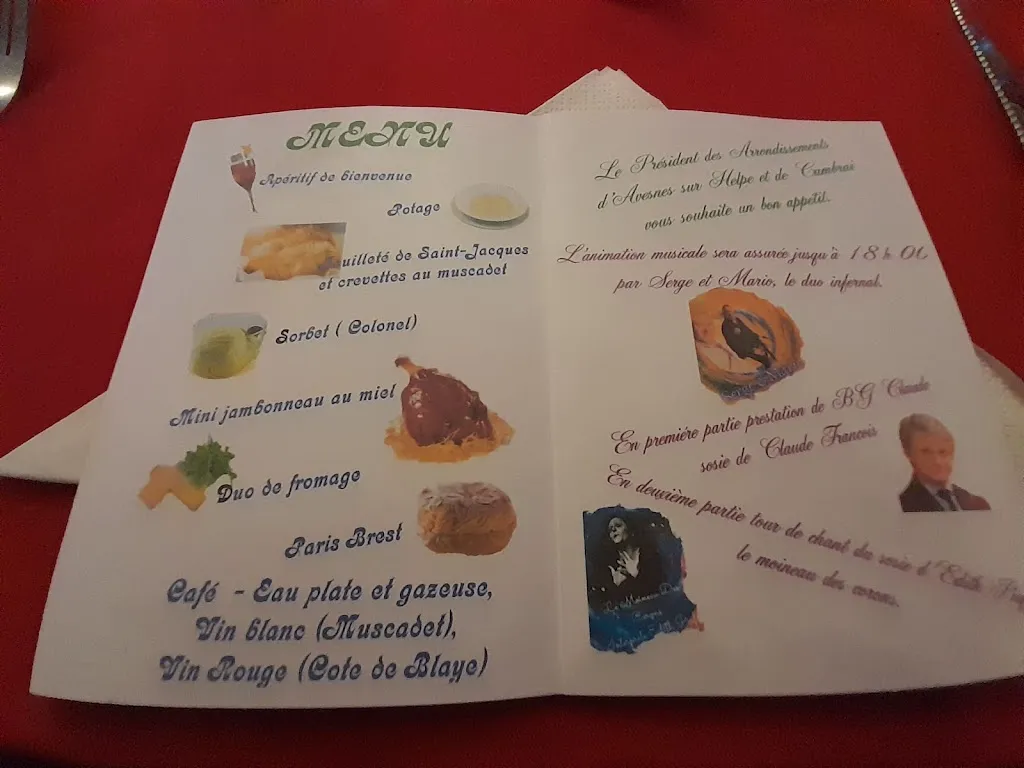 MENU
Apéritif de bienvenue
Potage
uilleté de Saint-Jacques
et crevettes au muscadet
Sorbet ( Colonel)
Mini jambonneau au miel
Duo de fromage
Paris Brest
Café - Eau plate et gazeuse,
Vin blanc (Muscadet),
Vin Rouge (Cote de Blaye)
Le Président des Arrondissements
d'Avesnes sur Helpe et de Cambrai
vous souhaite un bon appétit.
L'animation musicale sera assurée jusqu'à 18 h 00
par Serge et Mario, le duo infernal.
En premiére partie prestation de BG Claude
sosie de Claude François
En deuxième partie tour de chant du sosie d'Edith
le moineau des corons.
Le Moineau Des